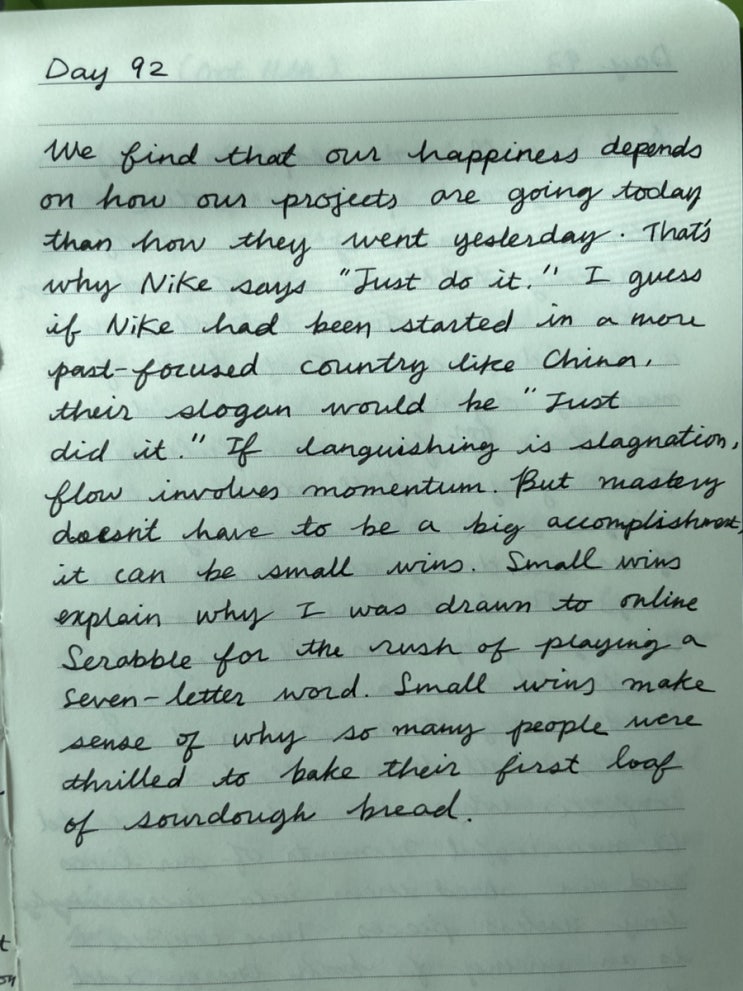 Day 92
We find that our happiness depends
on how our projects are going today
than how they went yesterday. That's
why Nike says "Just do it." I guess
if Nike had been started in a more
past-focused country like China,
their slogan would be "Just
did it." If languishing is stagnation,
flow involves momentum. But mastery
doesn't have to be a big accomplishment,
it can be small wins. Small wins
explain why I was drawn to online
Scrabble for the rush of playing a
seven-letter word. Small wins make
sense of why so many people were
thrilled to bake their first loaf
of sourdough bread.